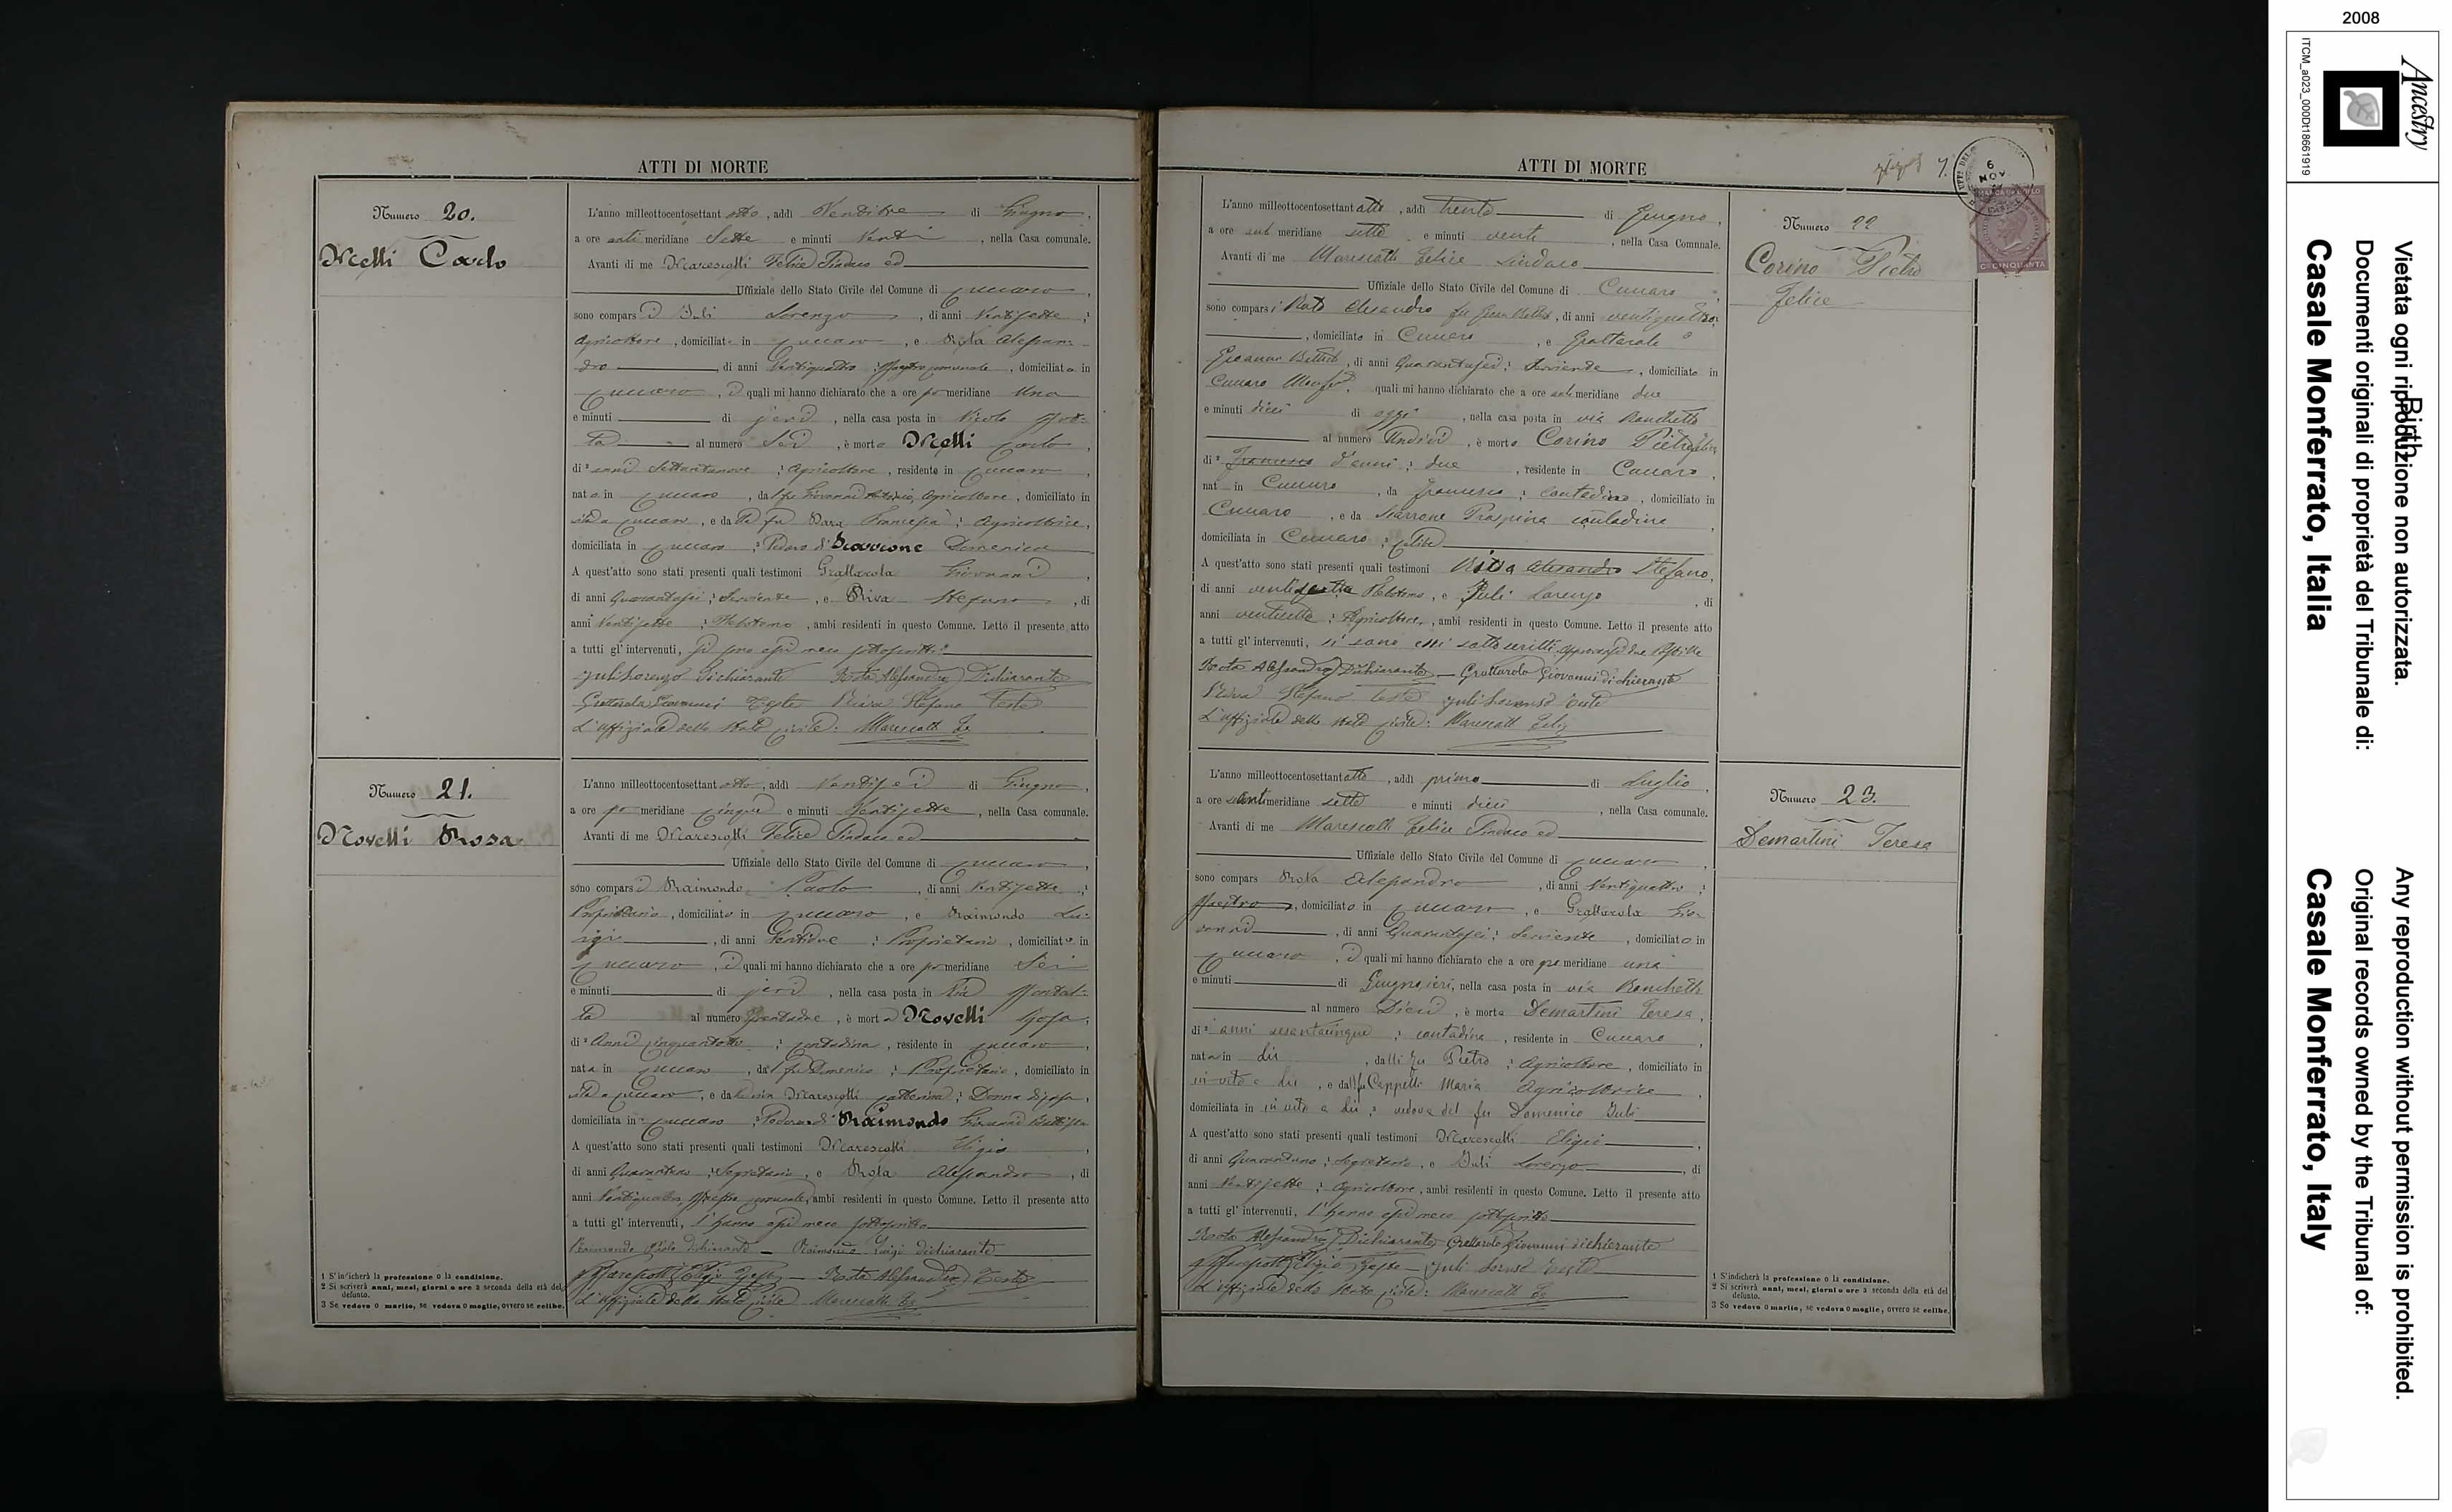 ATTI DI MORTE
Numero 20.
Melli Carlo
L'anno milleottocentosettant otto, addì Ventitre di Giugno,
a ore anti meridiane Sette e minuti Venti, nella Casa comunale.
Avanti di me Marescotti Felice Sindaco ed
Uffiziale dello Stato Civile del Comune di Cuccaro,
sono comparsi Juli Lorenzo, di anni Ventisette;
Agricoltore, domiciliato in Cuccaro, e Rota Alessan-
dro di anni Ventiquattro; Maestro comunale, domiciliato in
Cuccaro, i quali mi hanno dichiarato che a ore pomeridiane Una
e minuti di jeri, nella casa posta in Vicolo
al numero Sei, è morto Melli Carlo,
di anni Settantanove; Agricoltore, residente in Cuccaro,
nato in Cuccaro, dal fu Giovanni Antonio, Agricoltore, domiciliato in
vita a Cuccaro, e dalla fu Francesca; Agricoltrice,
domiciliata in Cuccaro; Vedovo di Scarrone Domenica
A quest'atto sono stati presenti quali testimoni Grattarola Giovanni,
di anni Quarantasei; Serviente, e Riva Stefano, di
anni Ventisette; Flebotomo, ambi residenti in questo Comune. Letto il presente atto
a tutti gl' intervenuti, si sono essi meco sottoscritti:
Juli Lorenzo Dichiarante Rota Alessandro Dichiarante
Grattarola Giovanni Teste Riva Stefano Teste
L'uffiziale dello stato civile: Marescotti Fe
Numero 21.
Novelli Rosa
L'anno milleottocentosettant otto, addì Ventisei di Giugno,
a ore pomeridiane Cinque e minuti Ventisette, nella Casa comunale.
Avanti di me Marescotti Felice Sindaco ed
Uffiziale dello Stato Civile del Comune di Cuccaro,
sono comparsi Raimondo Paolo, di anni Ventisette;
Proprietario, domiciliato in Cuccaro, e Raimondo Lu-
igi, di anni Ventidue; Proprietario, domiciliato in
Cuccaro, i quali mi hanno dichiarato che a ore pomeridiane Sei
e minuti di jeri, nella casa posta in Via
al numero Trentadue, è morta Novelli Rosa,
di Anni Cinquantotto; Contadina, residente in Cuccaro,
nata in Cuccaro, dal fu Domenico; Proprietario, domiciliato in
vita a Cuccaro, e dalla Marescotti Catterina; Donna di casa,
domiciliata in Cuccaro; Vedova di Raimondo Giovanni Battista
A quest'atto sono stati presenti quali testimoni Marescotti Eligio,
di anni Quarantuno; Segretario, e Rota Alessandro, di
anni Ventiquattro, Maestro comunale, ambi residenti in questo Comune. Letto il presente atto
a tutti gl' intervenuti, l'hanno essi meco sottoscritto
Raimondo Paolo dichiarante — Raimondo Luigi dichiarante
Marescotti Eligio Teste — Rota Alessandro Teste
L'uffiziale dello stato civile Marescotti Fe
1 S'indicherà la professione o la condizione.
2 Si scriverà anni, mesi, giorni o ore a seconda della età del
defunto.
3 Se vedovo o marito, se vedova o moglie, ovvero se celibe.
ATTI DI MORTE
7.
6
NOV
C. CINQUANTA
Numero 22
Corino Pietro
Felice
L'anno milleottocentosettant otto, addì trenta di Giugno,
a ore ant meridiane sette e minuti venti, nella Casa Comunale.
Avanti di me Marescotti Felice Sindaco
Uffiziale dello Stato Civile del Comune di Cuccaro,
sono comparsi Rota Alessandro fu Gian Battista, di anni ventiquattro;
, domiciliato in Cuccaro, e Grattarola
Giovanni Battista, di anni Quarantasei; Serviente, domiciliato in
Cuccaro Monfer. quali mi hanno dichiarato che a ore antimeridiane due
e minuti dieci di oggi, nella casa posta in via Ronchetti
al numero Undici, è morto Corino Pietro Felice
di Francesco d'anni; due, residente in Cuccaro,
nat in Cuccaro, da Francesco; Contadino, domiciliato in
Cuccaro, e da Scarrone Prospera contadina,
domiciliata in Cuccaro; celibe
A quest'atto sono stati presenti quali testimoni Riva Alessandro Stefano,
di anni ventisette Flebotomo, e Juli Lorenzo, di
anni ventisette; Agricoltore, ambi residenti in questo Comune. Letto il presente atto
a tutti gl' intervenuti, si sono essi sottoscritti approvasi due Postille
Rota Alessandro Dichiarante — Grattarola Giovanni dichierante
Riva Stefano teste Juli Lorenzo teste
L'uffiziale dello stato civile: Marescotti Felice
Numero 23.
Demartini Teresa
L'anno milleottocentosettant otto, addì primo di Luglio,
a ore antimeridiane sette e minuti dieci, nella Casa comunale.
Avanti di me Marescotti Felice Sindaco ed
Uffiziale dello Stato Civile del Comune di Cuccaro,
sono compars Rota Alessandro, di anni Ventiquattro;
Maestro, domiciliato in Cuccaro, e Grattarola Gio-
vanni, di anni Quarantasei; Serviente, domiciliato in
Cuccaro, i quali mi hanno dichiarato che a ore pomeridiane una
e minuti di Giugno ieri, nella casa posta in via Ronchetti
al numero Dieci, è morta Demartini Teresa,
di anni sessantacinque; contadina, residente in Cuccaro,
nata in Lu, dalli fu Pietro; Agricoltore, domiciliato in
in vita a Lu, e dalla fu Cappelli Maria Agricoltrice,
domiciliata in in vita a Lu; vedova del fu Domenico Juli
A quest'atto sono stati presenti quali testimoni Marescotti Eligio,
di anni Quarantuno; Segretario, e Juli Lorenzo, di
anni Ventisette; Agricoltore, ambi residenti in questo Comune. Letto il presente atto
a tutti gl' intervenuti, l'hanno essi meco sottoscritto
Rota Alessandro Dichiarante Grattarola Giovanni dichierante
Marescotti Eligio Teste — Juli Lorenzo Teste
L'uffiziale dello stato civile: Marescotti Fe
1 S'indicherà la professione o la condizione.
2 Si scriverà anni, mesi, giorni o ore a seconda della età del
defunto.
3 Se vedovo o marito, se vedova o moglie, ovvero se celibe.
2008
Ancestry
ITCM_a023_000Dt18661919
Birth
Vietata ogni riproduzione non autorizzata.
Documenti originali di proprietà del Tribunale di:
Casale Monferrato, Italia
Any reproduction without permission is prohibited.
Original records owned by the Tribunal of:
Casale Monferrato, Italy